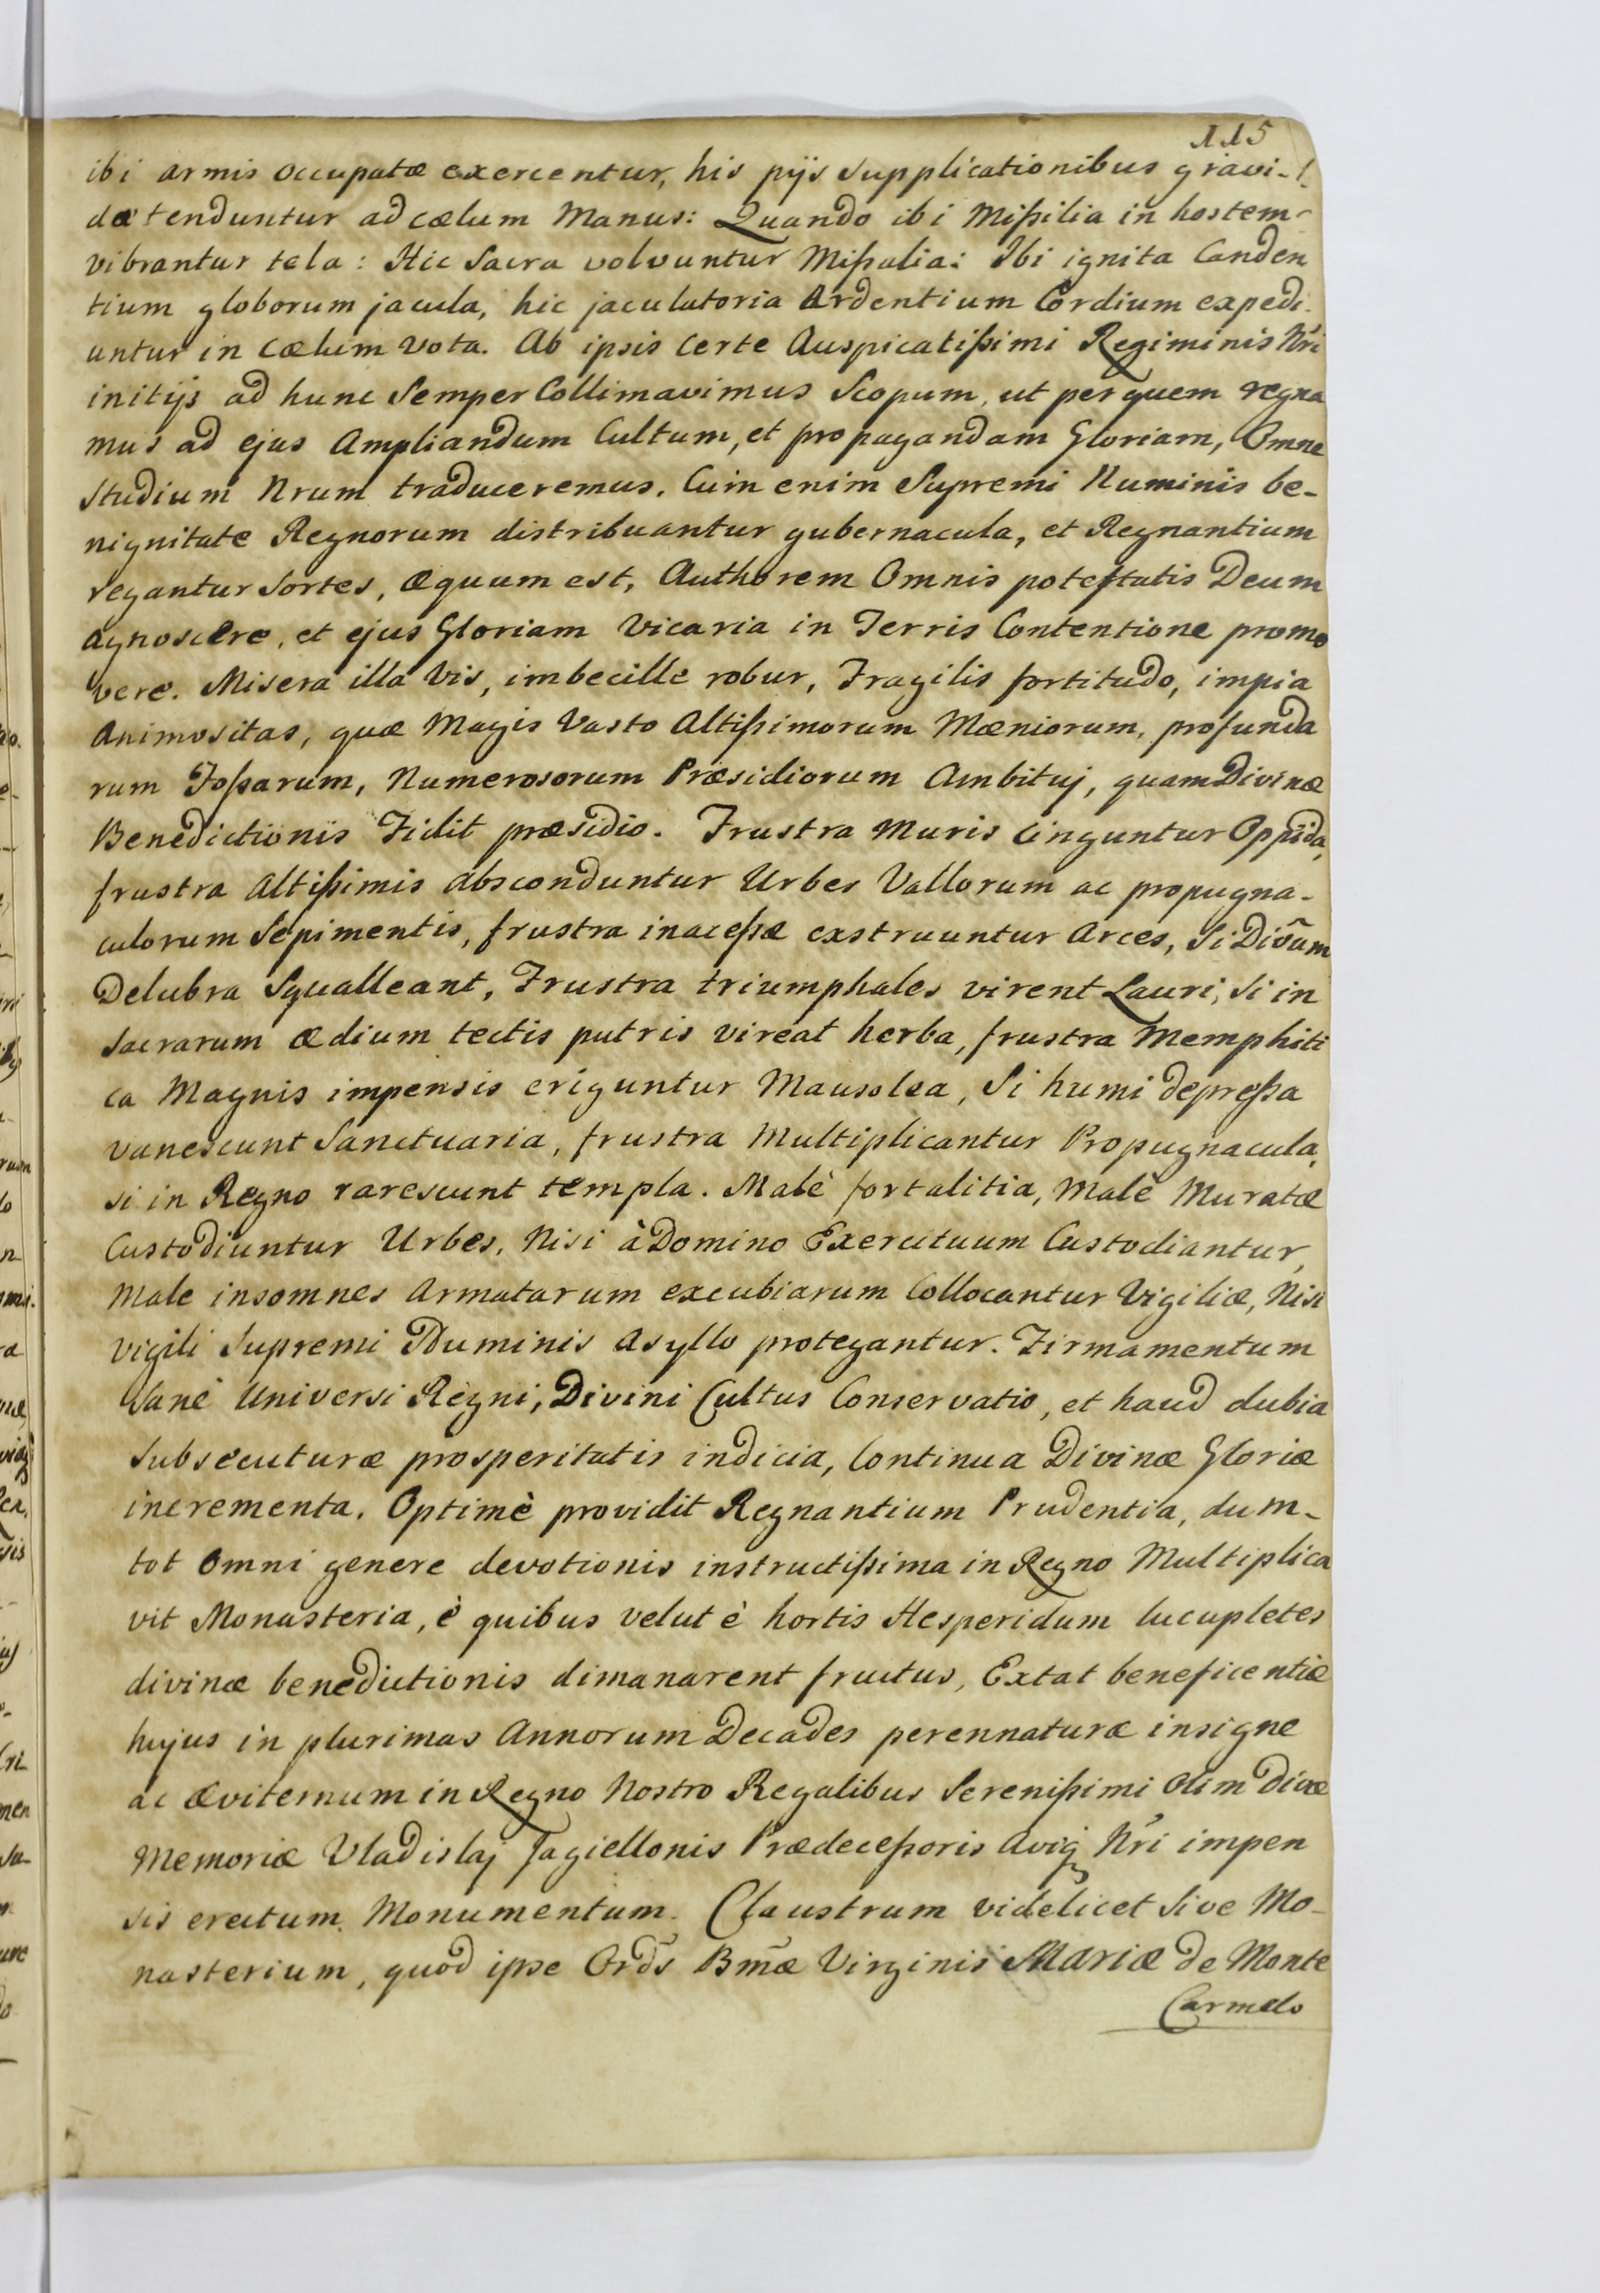 115
ibi armis occupatæ exercentur, his pijs supplicationibus gravi-
dæ tenduntur ad cælum Manus: Quando ibi Mißilia in hostem
vibrantur tela: Hic Sacra volvuntur Mißalia: Ibi ignita Canden
tium globorum jacula, hic jaculatoria Ardentium Cordium expedi-
untur in Cælum Vota. Ab ipsis Certe Auspicatißimi Regiminis Nri
initijs ad hunc Semper Collimavimus Scopum, ut per quem regna
mus ad ejus Ampliandum Cultum, et propagandam Gloriam, Omne
Studium Nrum traduceremus. Cum enim Supremi Numinis be-
nignitate Regnorum distribuantur gubernacula, et Regnantium
regantur Sortes, æquum est, Authorem Omnis potestatis Deum
agnoscere, et ejus Gloriam Vicaria in Terris Contentione promo
vere. Misera illa Vis, imbecille robur, Fragilis fortitudo, impia
Animositas, quæ Magis Vasto Altißimorum Mæniorum, profunda
rum Foßarum, Numerosorum Præsidiorum Ambituj, quam Divinæ
Benedictionis Fidit præsidio. Frustra Muris Cinguntur Oppida,
frustra Altißimis absconduntur Urbes Vallorum ac propugna-
culorum Sepimentis, frustra inaceßæ exstruuntur Arces, Si Divũm
Delubra Squalleant, Frustra triumphales virent Lauri, Si in
Sacrarum ædium tectis putris vireat herba, frustra Memphiti
ca Magnis impensis eriguntur Mausolea, Si humi depreßa
vanescunt Sanctuaria, frustra Multiplicantur Propugnacula,
si in Regno rarescunt templa. Malè fortalitia, Malè Muratæ
Custodiuntur Urbes, Nisi à Domino Exercituum Custodiantur,
Male insomnes Armatarum excubiarum Collocantur Vigiliæ, Nisi
vigili Supremi Numinis Asyllo protegantur. Firmamentum
Sanè Universi Regni, Divini Cultus Conservatio, et haud dubia
Subsecuturæ prosperitatis indicia, Continua Divinæ Gloriæ
incrementa. Optimè providit Regnantium Prudentia, dum
tot Omni genere devotionis instructißima in Regno Multiplica
vit Monasteria, è quibus velut è hortis Hesperidum lucupletes
divinæ benedictionis dimanarent fructus, Extat beneficentiæ
hujus in plurimas Annorum Decades perennaturæ insigne
ac æviternum in Regno Nostro Regalibus Serenißimi Olim Divæ
Memoriæ Vladislaj Jagiellonis Prædeceßoris Aviq Nri impen
sis erectum Monumentum. Claustrum videlicet Sive Mo-
nasterium, quod ipse Ords Bmæ Virginis Mariæ de Monte
Carmelo